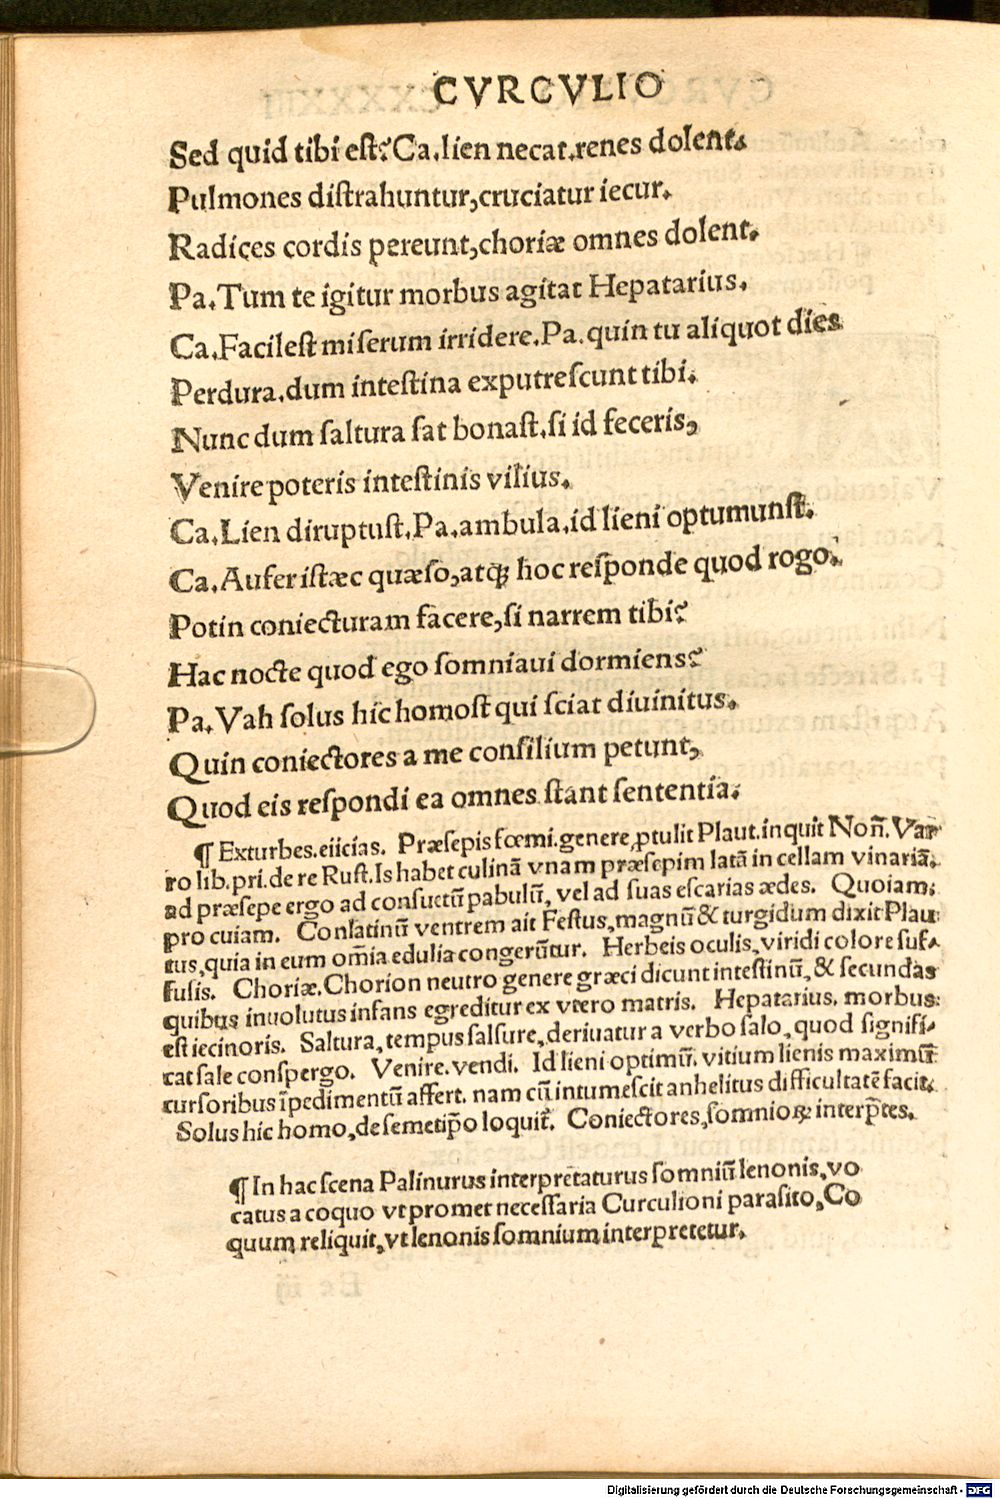 CVRCVLIO
Sed quid tibi eſt? Ca. lien necat. renes dolent.
Pulmones diſtrahuntur, cruciatur iecur.
Radices cordis pereunt, choriæ omnes dolent.
Pa. Tum te igitur morbus agitat Hepatarius.
Ca. Facileſt miſerum irridere. Pa. quin tu aliquot dies
Perdura. dum inteſtina exputreſcunt tibi.
Nunc dum ſaltura ſat bonaſt. ſi id feceris,
Venire poteris inteſtinis vilius.
Ca. Lien diruptuſt. Pa. ambula. id lieni optumunſt.
Ca. Aufer iſtæc quæſo, atqꝫ hoc reſponde quod rogo.
Potin coniecturam facere, ſi narrem tibi?
Hac nocte quod ego ſomniaui dormiens?
Pa. Vah ſolus hic homoſt qui ſciat diuinitus.
Quin coniectores a me conſilium petunt,
Quod eis reſpondi ea omnes ſtant ſententia.
¶ Exturbes. eiicias. Præſepis fœmi. genere ꝓtulit Plaut. inquit Noñ. Var
ro lib. pri. de re Ruſt. Is habet culinā vnam præſepim latā in cellam vinariā.
ad præſepe ergo ad conſuetū pabulū, vel ad ſuas eſcarias ædes. Quoiam:
pro cuiam. Conlatinū ventrem ait Feſtus, magnū & turgidum dixit Plau
tus, quia in eum om̄ia edulia congerūtur. Herbeis oculis, viridi colore ſuf-
fuſis. Choriæ. Chorion neutro genere græci dicunt inteſtinū, & ſecundas
quibus inuolutus infans egreditur ex vtero matris. Hepatarius. morbus:
eſt iecinoris. Saltura, tempus ſalſure, deriuatur a verbo ſalo, quod ſignifi-
cat ſale conſpergo. Venire. vendi. Id lieni optimū. vitium lienis maximū
curſoribus īpedimentū affert. nam cū intumeſcit anhelitus difficultatē facit.
Solus hic homo, de ſemetip̄o loquit̄. Coniectores, ſomnioꝝ interp̄tes.
¶ In hac ſcena Palinurus interpretaturus ſomniū lenonis, vo
catus a coquo vt promet neceſſaria Curculioni paraſito, Co
quum reliquit, vt lenonis ſomnium interpretetur.
Digitalisierung gefördert durch die Deutsche Forschungsgemeinschaft - DFG